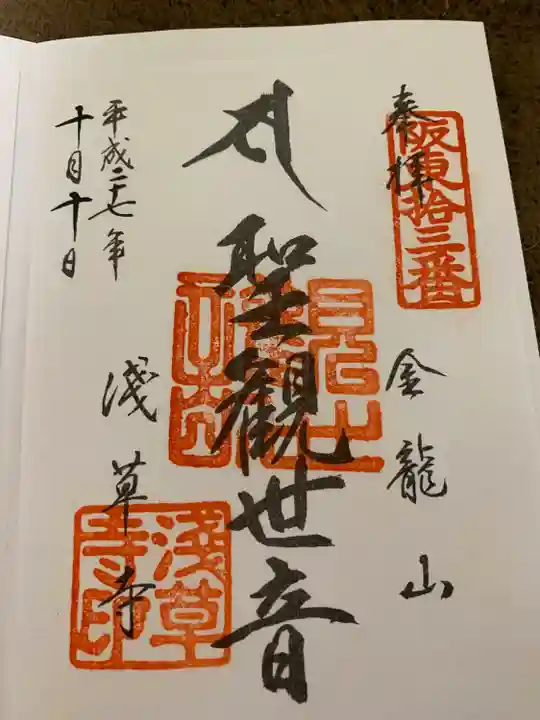 奉拝
阪東拾三番
金龍山
聖観世音
平成二十七年
十月十日
浅草寺
浅草寺印